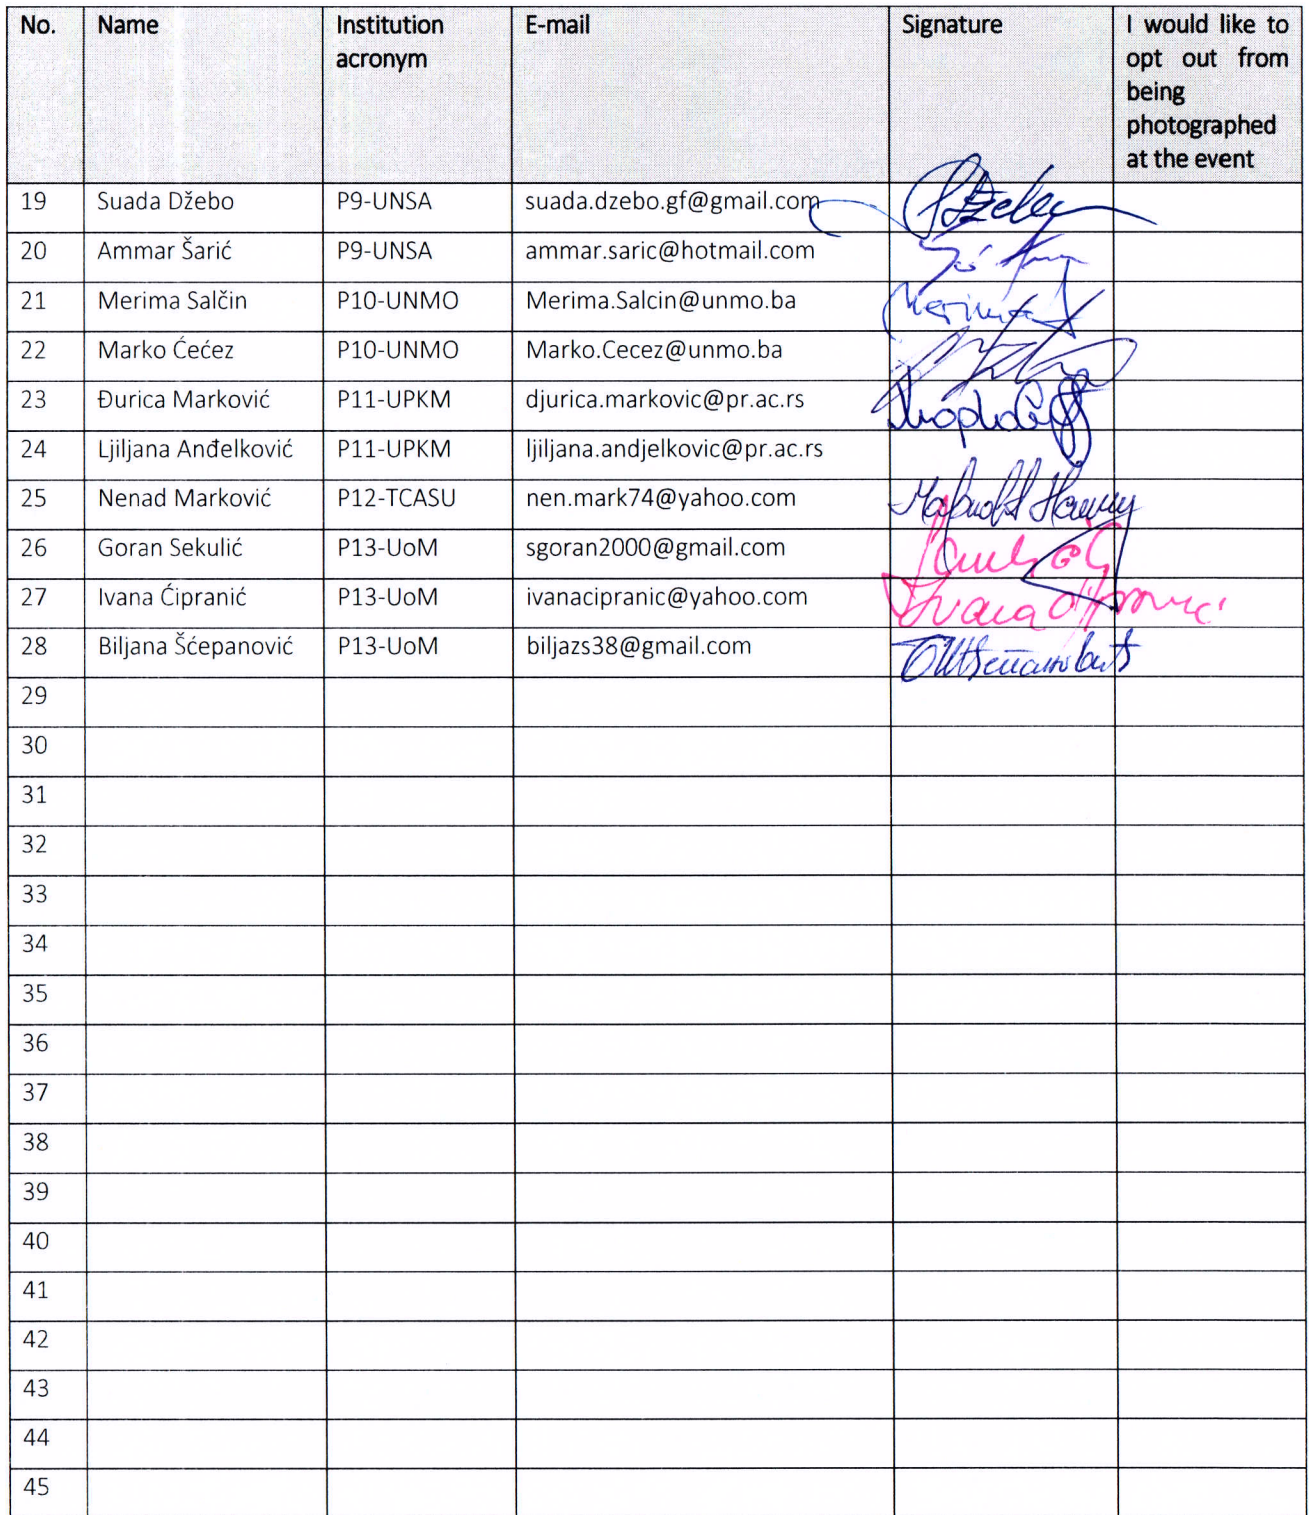 No. Name Institution acronym E-mail Signature I would like to opt out from being photographed at the event
19 Suada Džebo P9-UNSA suada.dzebo.gf@gmail.com
20 Ammar Šarić P9-UNSA ammar.saric@hotmail.com
21 Merima Salčin P10-UNMO Merima.Salcin@unmo.ba Merima
22 Marko Ćećez P10-UNMO Marko.Cecez@unmo.ba
23 Đurica Marković P11-UPKM djurica.markovic@pr.ac.rs
24 Ljiljana Anđelković P11-UPKM ljiljana.andjelkovic@pr.ac.rs
25 Nenad Marković P12-TCASU nen.mark74@yahoo.com
26 Goran Sekulić P13-UoM sgoran2000@gmail.com
27 Ivana Ćipranić P13-UoM ivanacipranic@yahoo.com Ivana
28 Biljana Šćepanović P13-UoM biljazs38@gmail.com
29
30
31
32
33
34
35
36
37
38
39
40
41
42
43
44
45